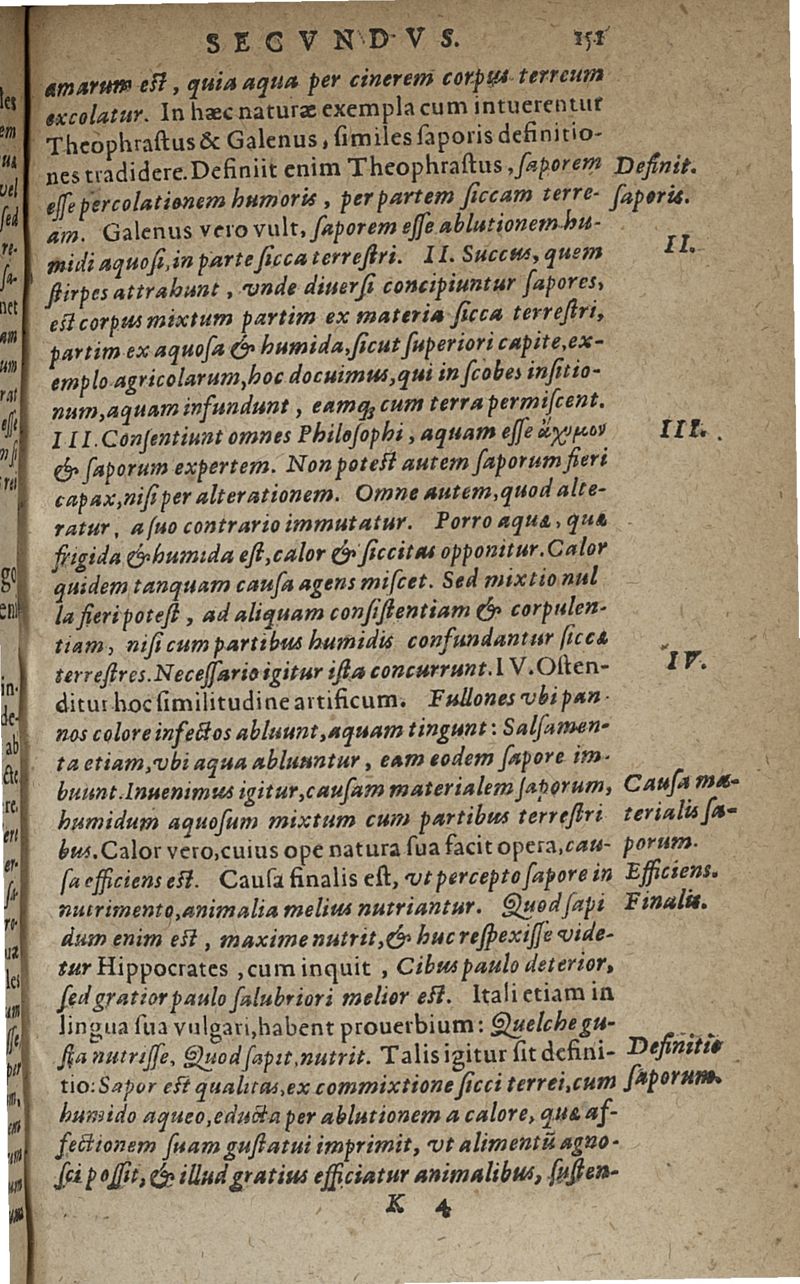 SECVNDVS. 151
amarum est, quia aqua per cinerem corpus terreum
excolatur. In hæc naturæ exempla cum intuerentur
Theophrastus & Galenus, similes saporis definitio-
nes tradidere. Definiit enim Theophrastus, saporem
Definit.
esse percolationem humoris, per partem siccam terre-
saporis.
am. Galenus vero vult, saporem esse ablutionem hu-
midi aquosi, in parte sicca terrestri. II. Succus, quem
II.
stirpes attrahunt, vnde diuersi concipiuntur sapores,
est corpus mixtum partim ex materia sicca terrestri,
partim ex aquosa & humida, sicut superiori capite, ex-
emplo agricolarum, hoc docuimus, qui in scobes insitio-
num, aquam infundunt, eamq; cum terra permiscent.
III. Consentiunt omnes Philosophi, aquam esse ἄχιμον
III.
& saporum expertem. Non potest autem saporum fieri
capax, nisi per alterationem. Omne autem, quod alte-
ratur, a suo contrario immutatur. Porro aquæ, quæ
frigida & humida est, calor & siccitas opponitur. Calor
quidem tanquam causa agens miscet. Sed mixtio nul
la fieri potest, ad aliquam consistentiam & corpulen-
tiam, nisi cum partibus humidis confundantur siccæ
terrestres. Necessario igitur ista concurrunt. IV. Osten-
IV.
ditur hoc similitudine artificum. Fullones vbi pan-
nos colore infectos abluunt, aquam tingunt: Salsamen-
ta etiam, vbi aqua abluuntur, eam eodem sapore im-
buunt. Inuenimus igitur, causam materialem saporum,
Causa ma-
humidum aquosum mixtum cum partibus terrestri
terialis sa-
bus. Calor vero, cuius ope natura sua facit opera, cau-
porum.
sa efficiens est. Causa finalis est, vt percepto sapore in
Efficiens.
nutrimento, animalia melius nutriantur. Quod sapi
Finalis.
dum enim est, maxime nutrit, & huc respexisse vide-
tur Hippocrates, cum inquit, Cibus paulo deterior,
sed gratior paulo salubriori melior est. Itali etiam in
lingua sua vulgari, habent prouerbium: Quelche gu-
sta nutrisse, Quod sapit, nutrit. Talis igitur sit defini-
Definitio
tio: Sapor est qualitas, ex commixtione sicci terrei, cum
saporum.
humido aqueo, educta per ablutionem a calore, quæ af-
fectionem suam gustatui imprimit, vt alimentū agno-
sci possit, & illud gratius efficiatur animalibus, susten-
K 4